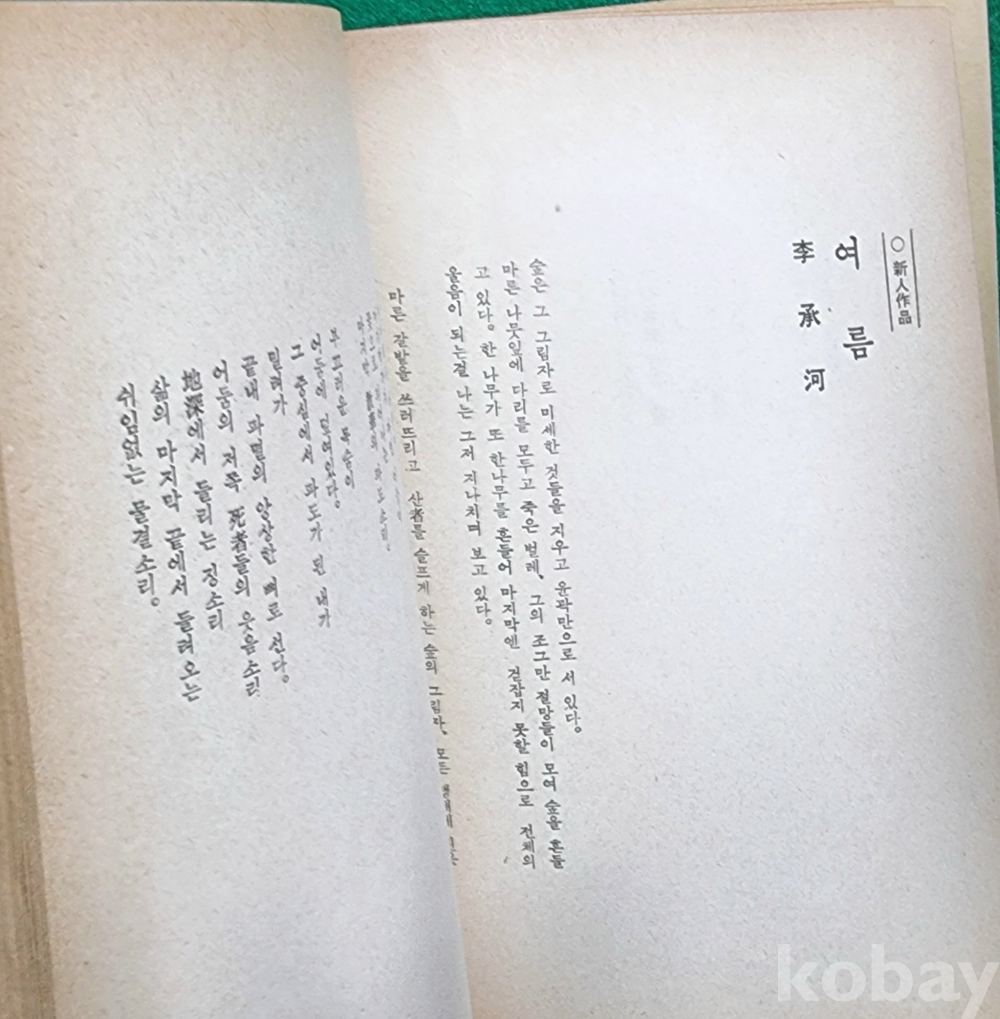 ○ 新人作品
여름
李承河
숲은 그 그림자로 미세한 것들을 지우고 윤곽만으로 서 있다.
마른 나뭇잎에 다리를 모두고 죽은 벌레. 그의 조그만 절망들이 모여 숲을 흔들
고 있다. 한 나무가 또 한나무를 흔들어 마지막엔 걷잡지 못할 힘으로 전체의
울음이 되는걸 나는 그저 지나치며 보고 있다.
마른 갈밭을 쓰러뜨리고 산者를 슬프게 하는 숲의 그림자. 모든
부끄러운 목숨이
어둠에 밀려있다.
그 중심에서 파도가 된 내가
밀려가
끝내 파멸의 앙상한 뼈로 선다.
어둠의 저쪽 死者들의 웃음소리
地深에서 들리는 징소리
삶의 마지막 끝에서 들려오는
쉬임없는 물결소리.
kobay